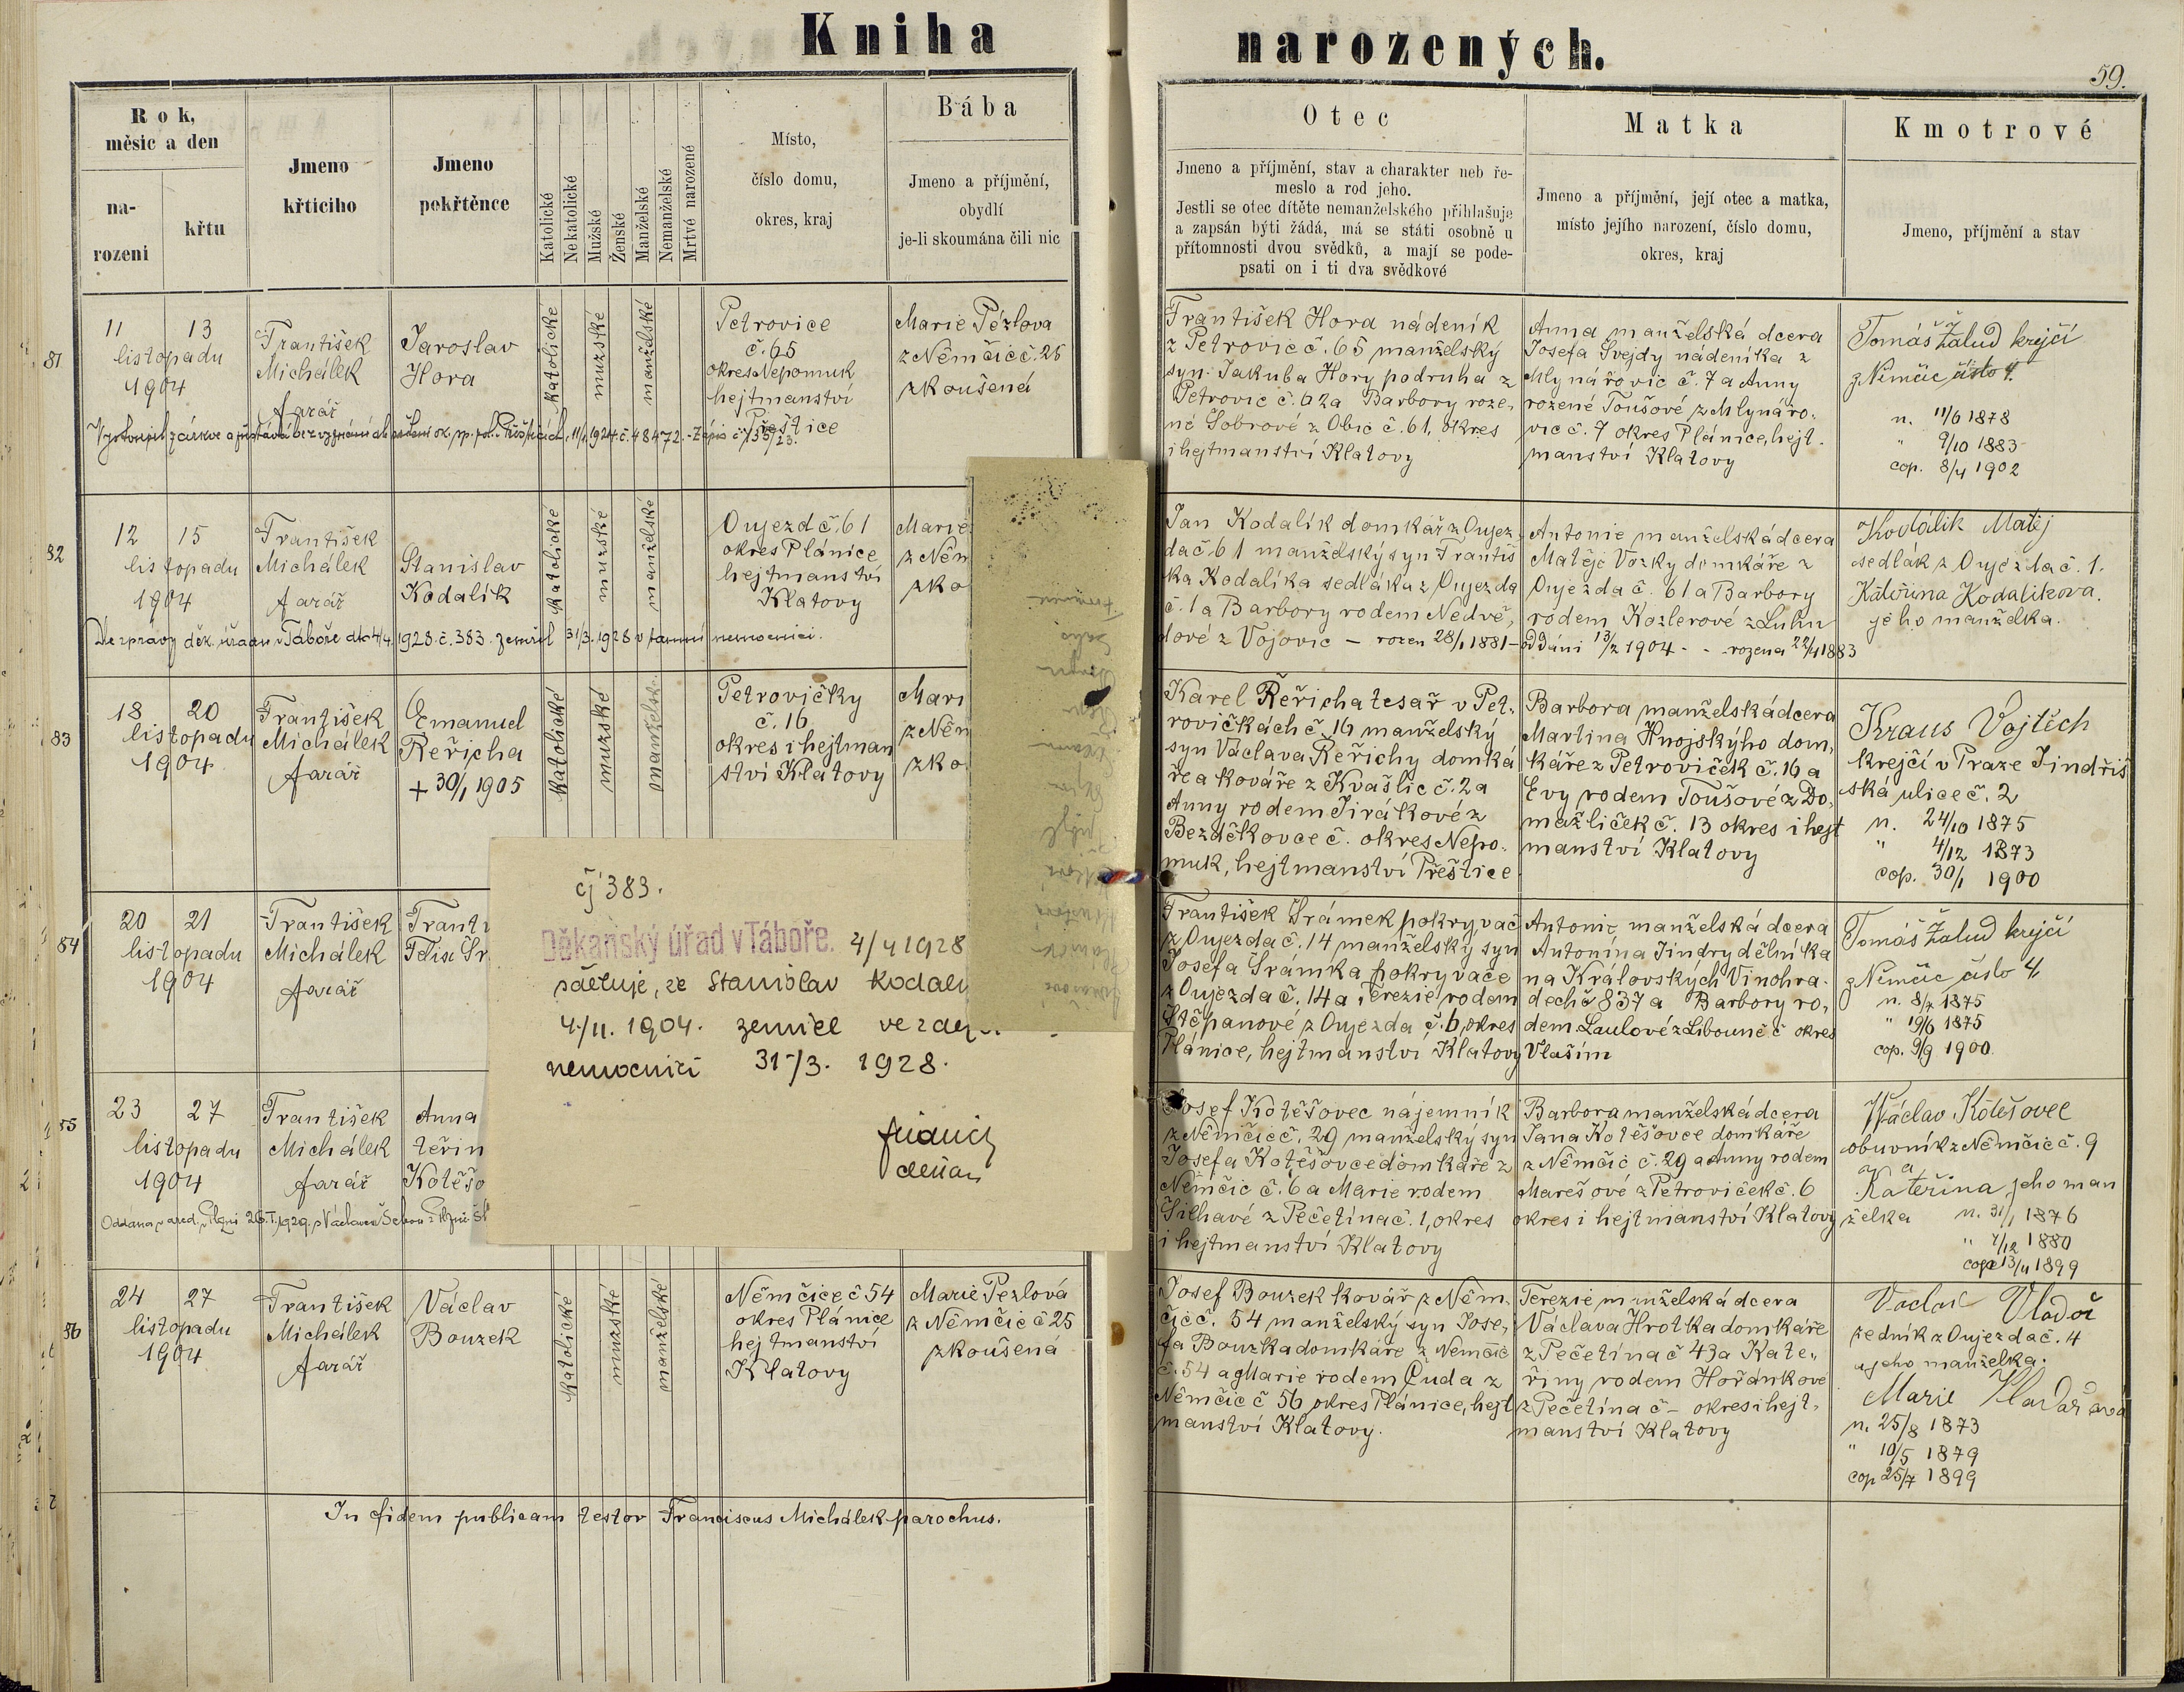 Kniha narozených.
59.
Rok,
měsic a den
na-
rozeni
křtu
Jmeno
křticiho
Jmeno
pokřtěnce
Katolické
Nekatolické
Mužské
Ženské
Manželské
Nemanželské
Mrtvé narozené
Místo,
číslo domu,
okres, kraj
Bába
Jmeno a příjmění,
obydlí
je-li skoumána čili nic
Otec
Jmeno a příjmění, stav a charakter neb ře-
meslo a rod jeho.
Jestli se otec dítěte nemanželského přihlašuje
a zapsán býti žádá, má se státi osobně u
přítomnosti dvou svědků, a mají se pode-
psati on i ti dva svědkové
Matka
Jmeno a příjmění, její otec a matka,
místo jejího narození, číslo domu,
okres, kraj
Kmotrové
Jmeno, příjmění a stav
81
11 13
listopadu
1904
František
Michálek
farář
Jaroslav
Hora
Katolické
mužské
manželské
Petrovice
č. 65
okres Nepomuk
hejtmanství
Přeštice
Marie Pézlova
z Němčic č. 25
zkoušená
František Hora nádeník
z Petrovic č. 65 manželský
syn Jakuba Hory podruha z
Petrovic č. 62 a Barbory roze,
né Sobrové z Obic č. 61, okres
i hejtmanství Klatovy
Anna manželská dcera
Josefa Švejdy nádeníka z
Mlynářovic č. 7 a Anny
rozené Toušové z Mlynářo,
vic č. 7 okres Plánice, hejt.
manství Klatovy
Tomáš Žalud krejčí
z Němčic číslo 4.
n. 11/6 1878
" 9/10 1883
cop. 8/4 1902
82
12 15
listopadu
1904
František
Michálek
farář
Stanislav
Kodalík
Katolické
mužské
manželské
Oujezd č. 61
okres Plánice
hejtmanství
Klatovy
Marie
z Něm
zko
Dle zprávy děk. úřadu v Táboře dto 4/4. 1928 č. 383. zemřel 31/3. 1928 v tamní nemocnici.
Jan Kodalík domkář z Oujez,
da č 61 manželský syn Františ
ka Kodalíka sedláka z Oujezda
č. 1 a Barbory rodem Nedvě,
dové z Vojovic – rozen 28/1 1881 –
Antonie manželská dcera
Matěje Vozky domkáře z
Oujezda č. 61 a Barbory
rodem Kozlerové z Luhu
oddáni 13/2 1904 - - rozena 22/4 1883
Kodálik Matěj
sedlák z Oujezda č. 1.
Kateřina Kodalikova.
jeho manželka.
83
18 20
listopadu
1904
František
Michálek
farář
Emanuel
Řeřicha
+ 30/1 1905
Katolické
mužské
manželské
Petrovičky
č. 16
okres i hejtman
ství Klatovy
Mari
z Něm
zko
Karel Řeřicha tesař v Pet-
rovičkách č. 16 manželský
syn Václava Řeřichy domká
ře a kováře z Kvašlic č. 2 a
Anny rodem Jirátkové z
Bezděkovce č. okres Nepo.
muk, hejtmanství Přeštice
Barbora manželská dcera
Martina Hnojskýho dom,
káře z Petroviček č. 16 a
Evy rodem Toušové z Do,
mažliček č. 13 okres i hejt
manství Klatovy
Kraus Vojtěch
krejčí v Praze Jindřiš
ská ulice č. 2
n. 24/10 1875
" 4/12 1873
cop. 30/1 1900
84
20 21
listopadu
1904
František
Michálek
farář
čj 383.
Děkanský úřad v Táboře. 4/4 1928
sděluje, že Stanislav Kodal
4/11. 1904. zemřel ve zdejší
nemocnici 31/3. 1928.
děkan
František Šrámek pokryvač
z Oujezda č. 14 manželský syn
Josefa Šrámka pokryvače
z Oujezda č. 14 a Terezie rodem
Štěpanové z Oujezda č. 6, okres
Plánice, hejtmanství Klatovy
Antonie manželská dcera
Antonína Jindry dělníka
na Královských Vinohra-
dech č 837 a Barbory ro,
dem Laulové z Libouně č okres
Vlašim
Tomáš Žalud krejčí
z Němčic číslo 4
n. 8/7 1875
" 19/6 1875
cop. 9/9 1900
85
23 27
listopadu
1904
František
Michálek
farář
Anna
teřin
Kotěšo
Josef Kotěšovec nájemník
z Němčic č. 29 manželský syn
Josefa Kotěšovce domkáře z
Němčic č. 6 a Marie rodem
Šilhavé z Pečetína č. 1, okres
i hejtmanství Klatovy
Barbora manželská dcera
Jana Kotěšovce domkáře
z Němčic č. 29 a Anny rodem
Marešové z Petroviček č. 6
okres i hejtmanství Klatovy
Václav Kotěšovec
obuvník z Němčic č. 9
a
Kateřina jeho man
želka n. 31/1 1876
" 7/12 1880
cop 13/11 1899
86
24 27
listopadu
1904
František
Michálek
farář
Václav
Bouzek
Katolické
mužské
manželské
Němčice č 54
okres Plánice
hejtmanství
Klatovy
Marie Pezlová
z Němčic č 25
zkoušená
Josef Bouzek kovář z Něm,
čic č. 54 manželský syn Jose,
fa Bouzka domkáře z Němčic
č. 54 a Marie rodem Čuda z
Němčic č 56 okres Plánice, hejt
manství Klatovy.
Terezie manželská dcera
Václava Hrotka domkáře
z Pečetína č 43 a Kate,,
řiny rodem Hořánkové
z Pečetína č – okres i hejt,
manství Klatovy
Vaclav Vladař
zedník z Oujezda č. 4
a jeho manželka.
Marie Vladařova
n. 25/8 1873
" 10/5 1879
cop 25/7 1899
In fidem publicam testor Franciscus Michálek parochus.